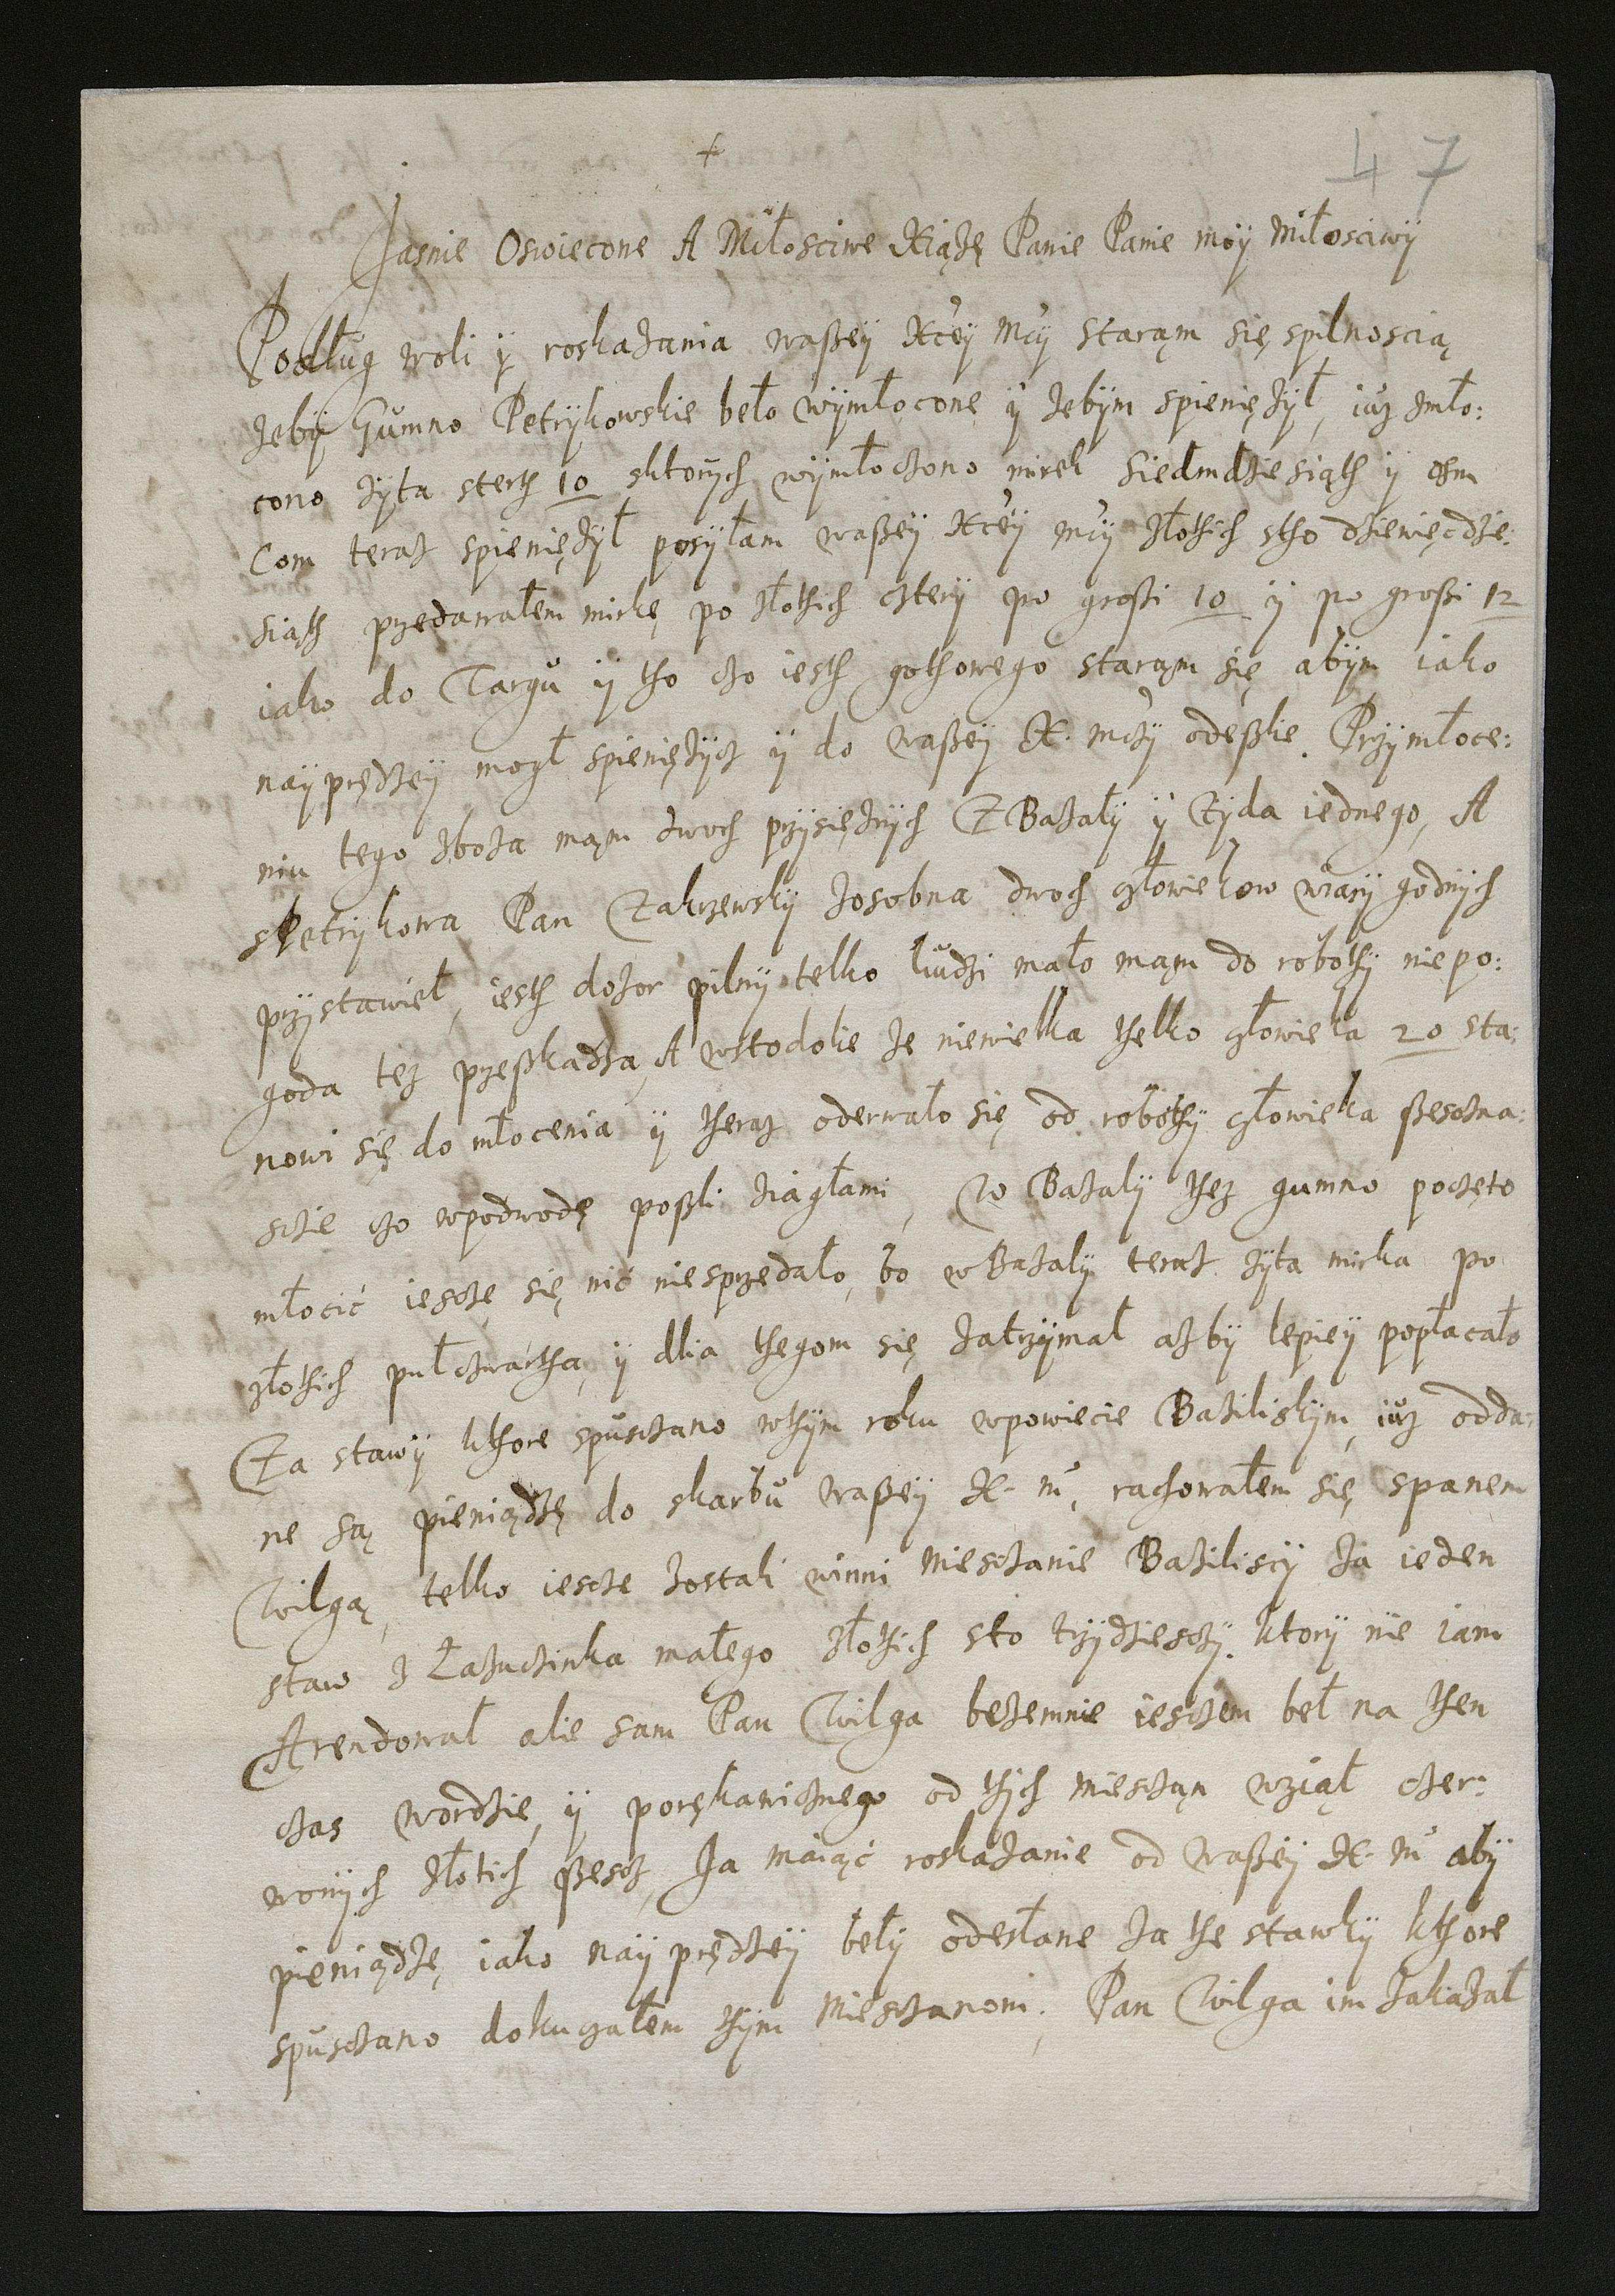 +
47
Jasnie Oswiecone A Miłosciwe Kiążę Panie Panie moÿ Miłosciwÿ
Podług woli ÿ roskazania waßeÿ Kceÿ Mcÿ starąm się spilnoscią
zebÿ Gumno Petrÿkowskie beło wÿmłocone ÿ zebÿm spieniężÿł, iuz zmło:
cono zÿta sterth 10 sktorÿch wÿmłoczono mirek siedmdziesiąth ÿ osm
Com teraz spieniężÿł posÿłam waßeÿ Kceÿ mcÿ złothich stho dziewięcdzie:
siąth przedawałem mirkę po złothich czterÿ po großi 10 ÿ po großi 12
iako do Targu ÿ tho czo iesth gothowego starąm się abÿm iako
naÿprędzeÿ mogł spieniężÿcz ÿ do waßeÿ K. mczÿ odeßlie. Przÿmłoce:
niu tego zboza mąm dwoch przÿsięznÿch Z Bazalÿ ÿ Zÿda iednego, A
sPetrÿkowa Pan Zakrzewskÿ zosobna dwoch człowiekow wiarÿ godnÿch
przÿstawieł, iesth dozor pilnÿ telko ludzi mało mąm do robothÿ niepo:
goda tez przeßkadza, A wstodolie ze niewielka thelko człowieka 20 sta:
nowi się do młocenia ÿ theraz oderwało się od robothÿ człowieka ßesczna:
sczie czo wpodwodę poßli ziagłami, W Bazalÿ thez gumno poczęto
młocić iescze się nić niesprzedało, bo wBazalÿ teraz zÿta mirka po
złothich pułczwartha, ÿ dlia thegom się zatrzÿmał azbÿ lepieÿ popłacało
Za stawÿ kthore spusczano wthÿm roku wpowiecie Baziliskÿm, iuz odda:
ne są pieniądzę do skarbu waßeÿ K. m, rachowałem się spanem
Wilgą, telko iescze zostali winni Miesczanie Baziliscÿ za ieden
staw z Łazuczinka małego złothich sto trzÿdziesczÿ. ktorÿ nie iam
Arendował alie sam Pan Wilga bezemnie iesczem beł na then
czas wordzie, ÿ porękawicznego od thÿch miescząn wziął czer:
wonÿch złotich ßescz, Ja maiąć roskazanie od waßeÿ K. m abÿ
pieniądzę iako naÿprędzeÿ bełÿ odesłane za the stawkÿ kthore
spusczano dokuczałem thÿm Miesczanom, Pan Wilga im zakazał